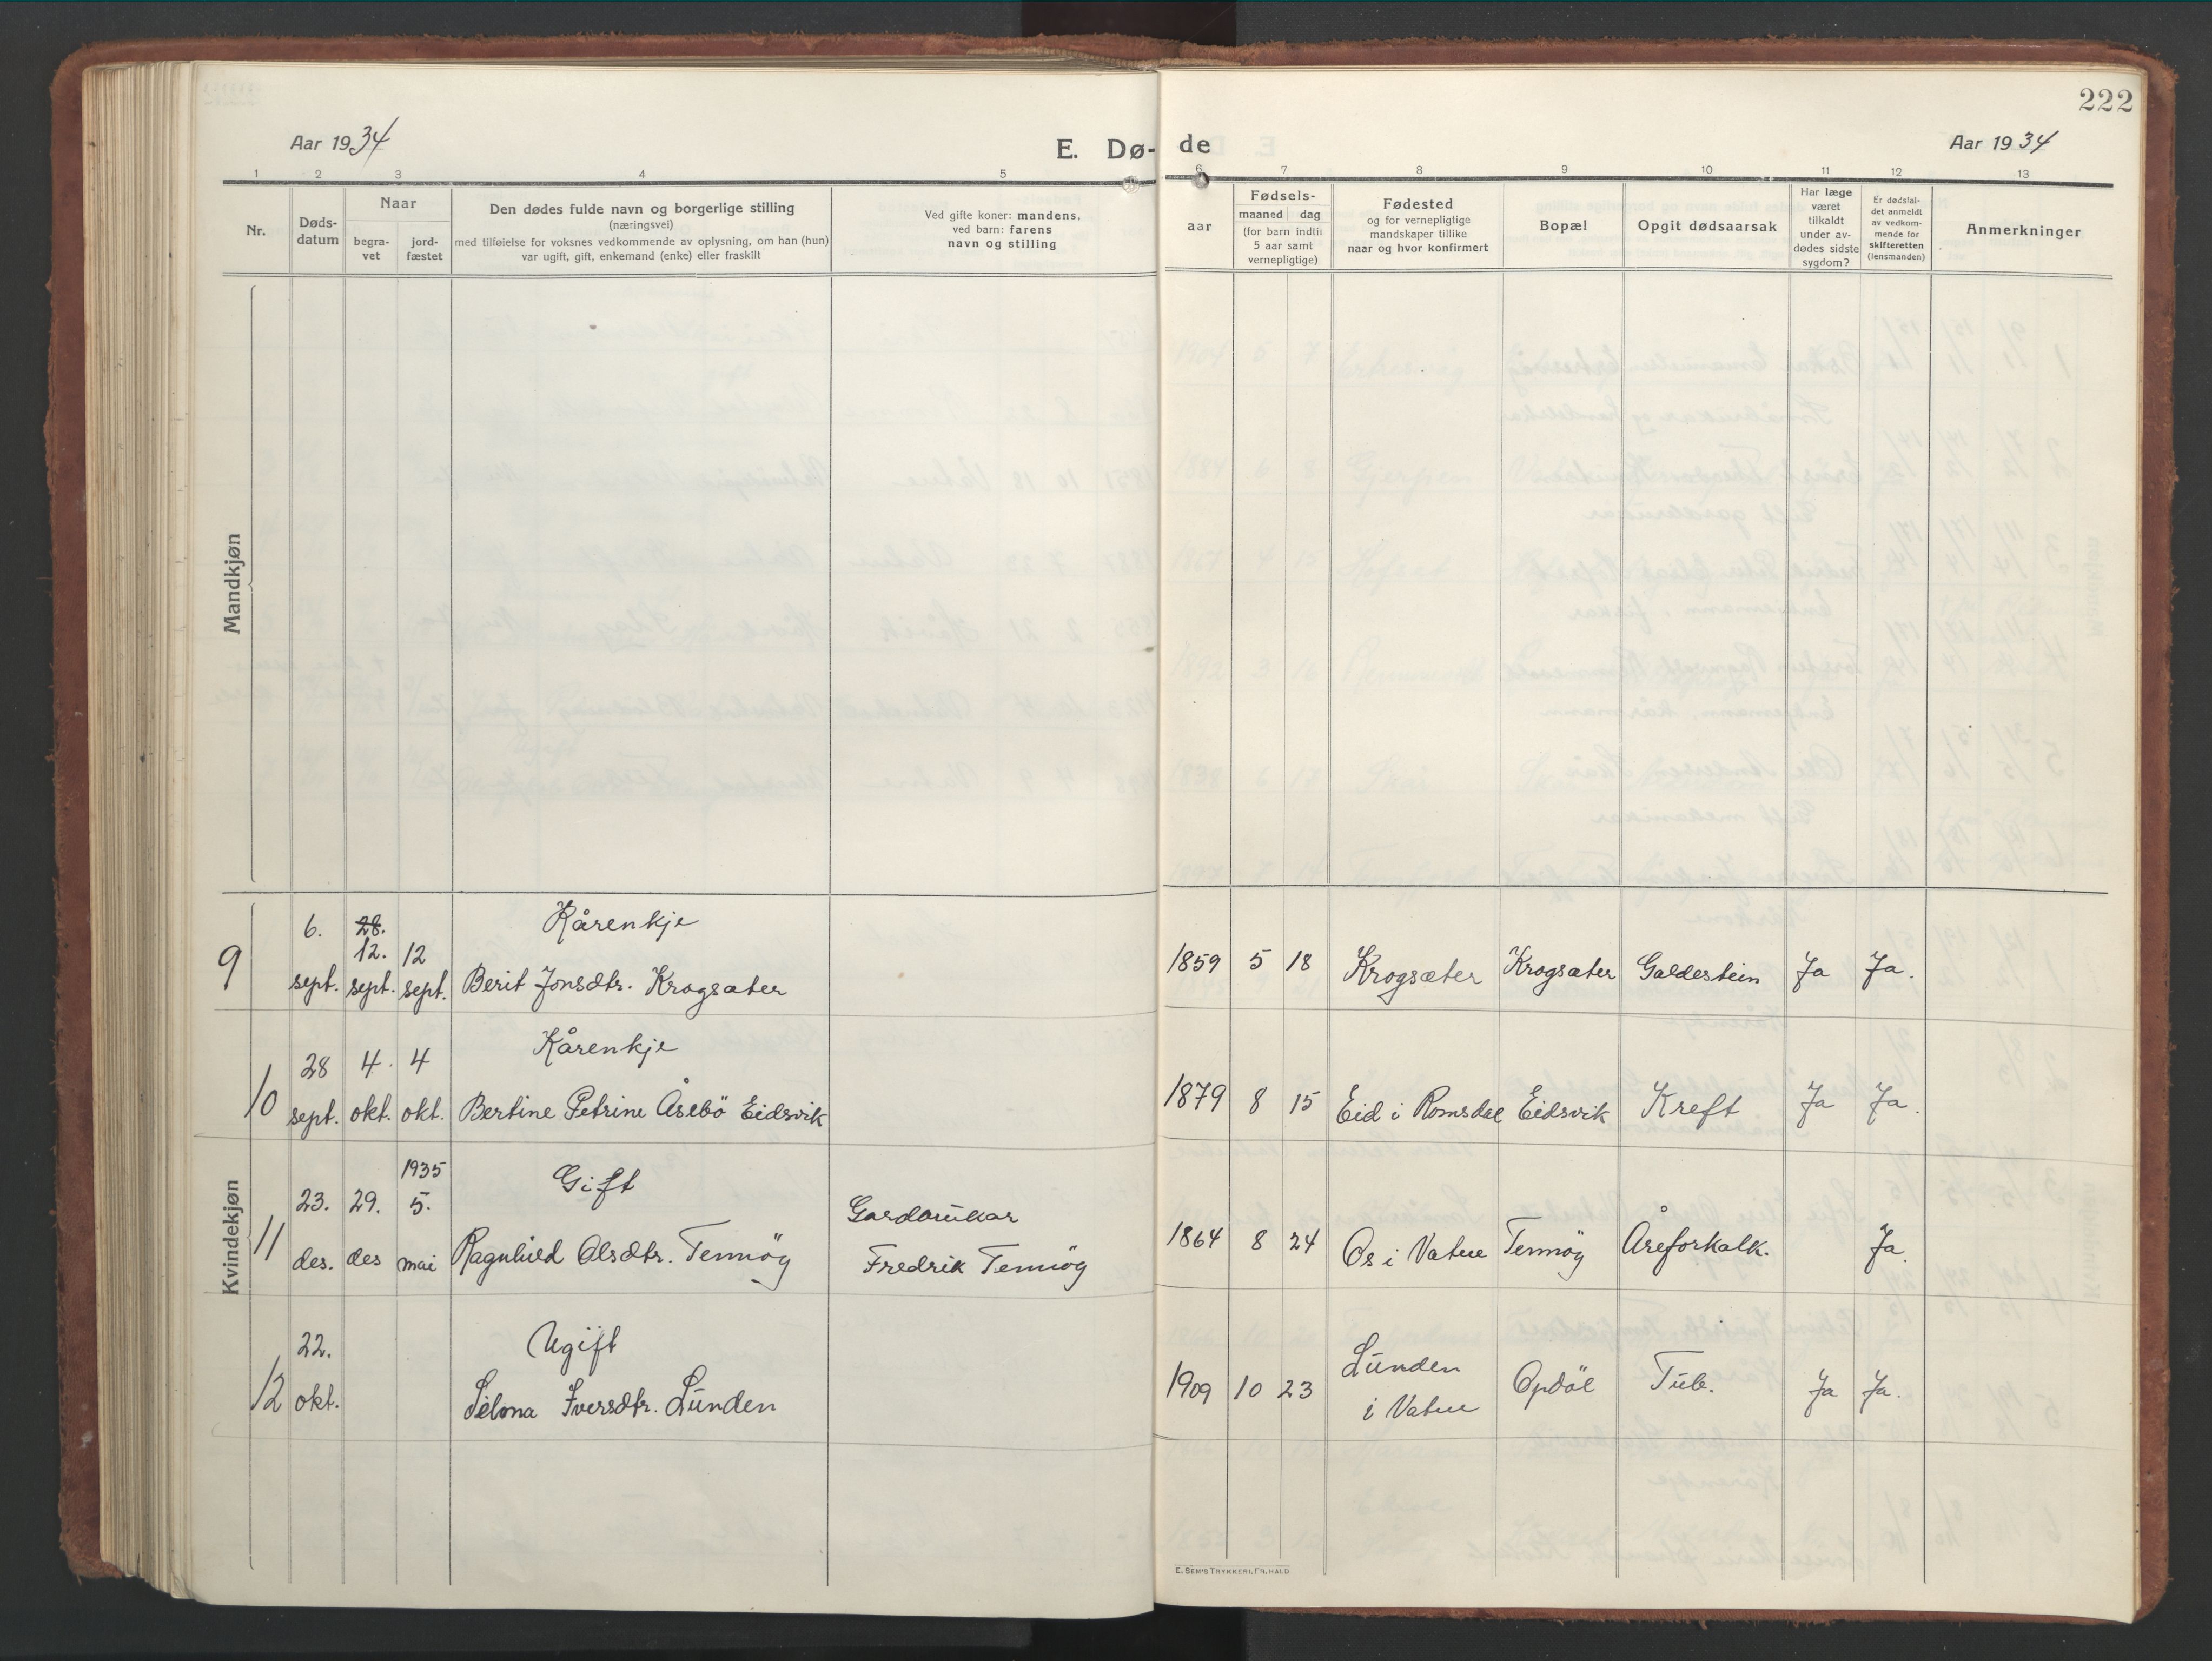 222
Aar 1934
E. Dø-
de
Aar 1934
1 2 3 4 5 6 7 8 9 10 11 12 13
Nr.
Døds-
datum
Naar
begra-
vet
jord-
fæstet
Den dødes fulde navn og borgerlige stilling
(næringsvei)
med tilføielse for voksnes vedkommende av oplysning, om han (hun)
var ugift, gift, enkemand (enke) eller fraskilt
Ved gifte koner: mandens,
ved barn: farens
navn og stilling
Fødsels-
aar
maaned dag
(for barn indtil
5 aar samt
vernepligtige)
Fødested
og for vernepligtige
mandskaper tillike
naar og hvor konfirmert
Bopæl
Opgit dødsaarsak
Har læge
været
tilkaldt
under av-
dødes sidste
sygdom?
Er dødsfal-
det anmeldt
av vedkom-
mende for
skifteretten
(lensmanden)
Anmerkninger
Mandkjøn
Kvindekjøn
6. 28. Kårenkje
12. 12
9 sept. sept. sept. Berit Jonsdtr. Krogsæter 1859 5 18 Krogsæter Krogsæter Galdestein Ja Ja.
28 4. 4 Kårenkje
10 sept. okt. okt. Bertine Petrine Åsebö Eidsvik 1879 8 15 Eid i Romsdal Eidsvik Kreft Ja Ja.
1935
23. 29. 5. Gift Gardbrukar
11 des. des mai Ragnhild Olsdtr. Tennöy Fredrik Tennöy 1864 8 24 Os i Vatne Tennöy Åreforkalk. Ja.
22. Ugift Lunden
12 okt. Selma Iversdtr. Lunden 1909 10 23 i Vatne Opdöl Tub. Ja Ja.
E. SEM'S TRYKKERI, FR. HALD